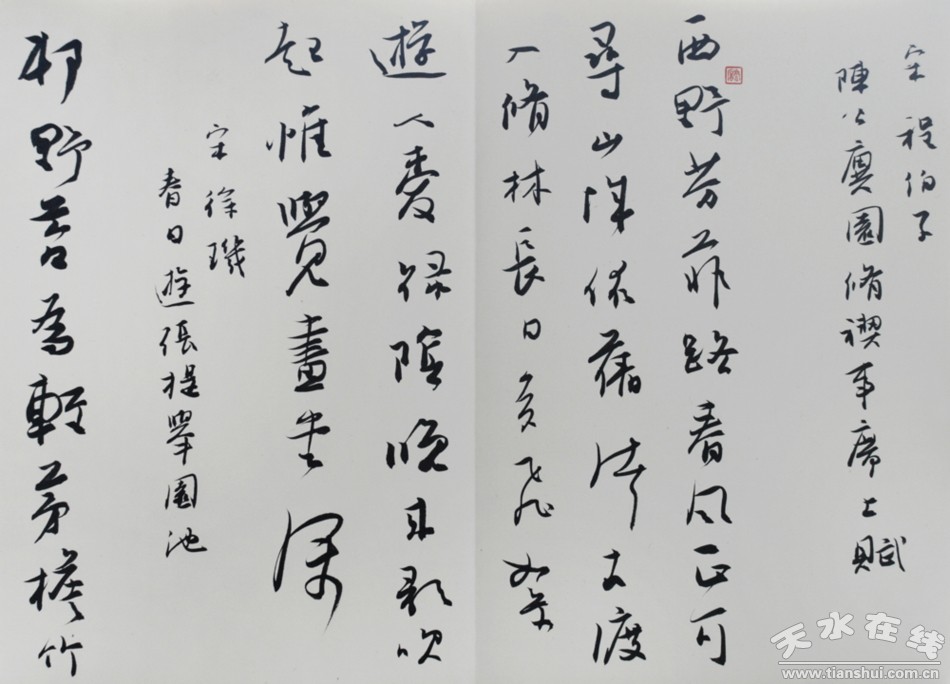 宋程伯子
陳公廙園脩禊事席上賦
西野芳菲路春风正可
尋山城依舊渚古渡
入脩林長日多飛絮
遊人愛綠陰晚来歌吹
起惟覺畫堂深
宋徐璣
春日遊張提舉園池
邨野苔為輕茅檐竹
天水在线
www.tianshui.com.cn